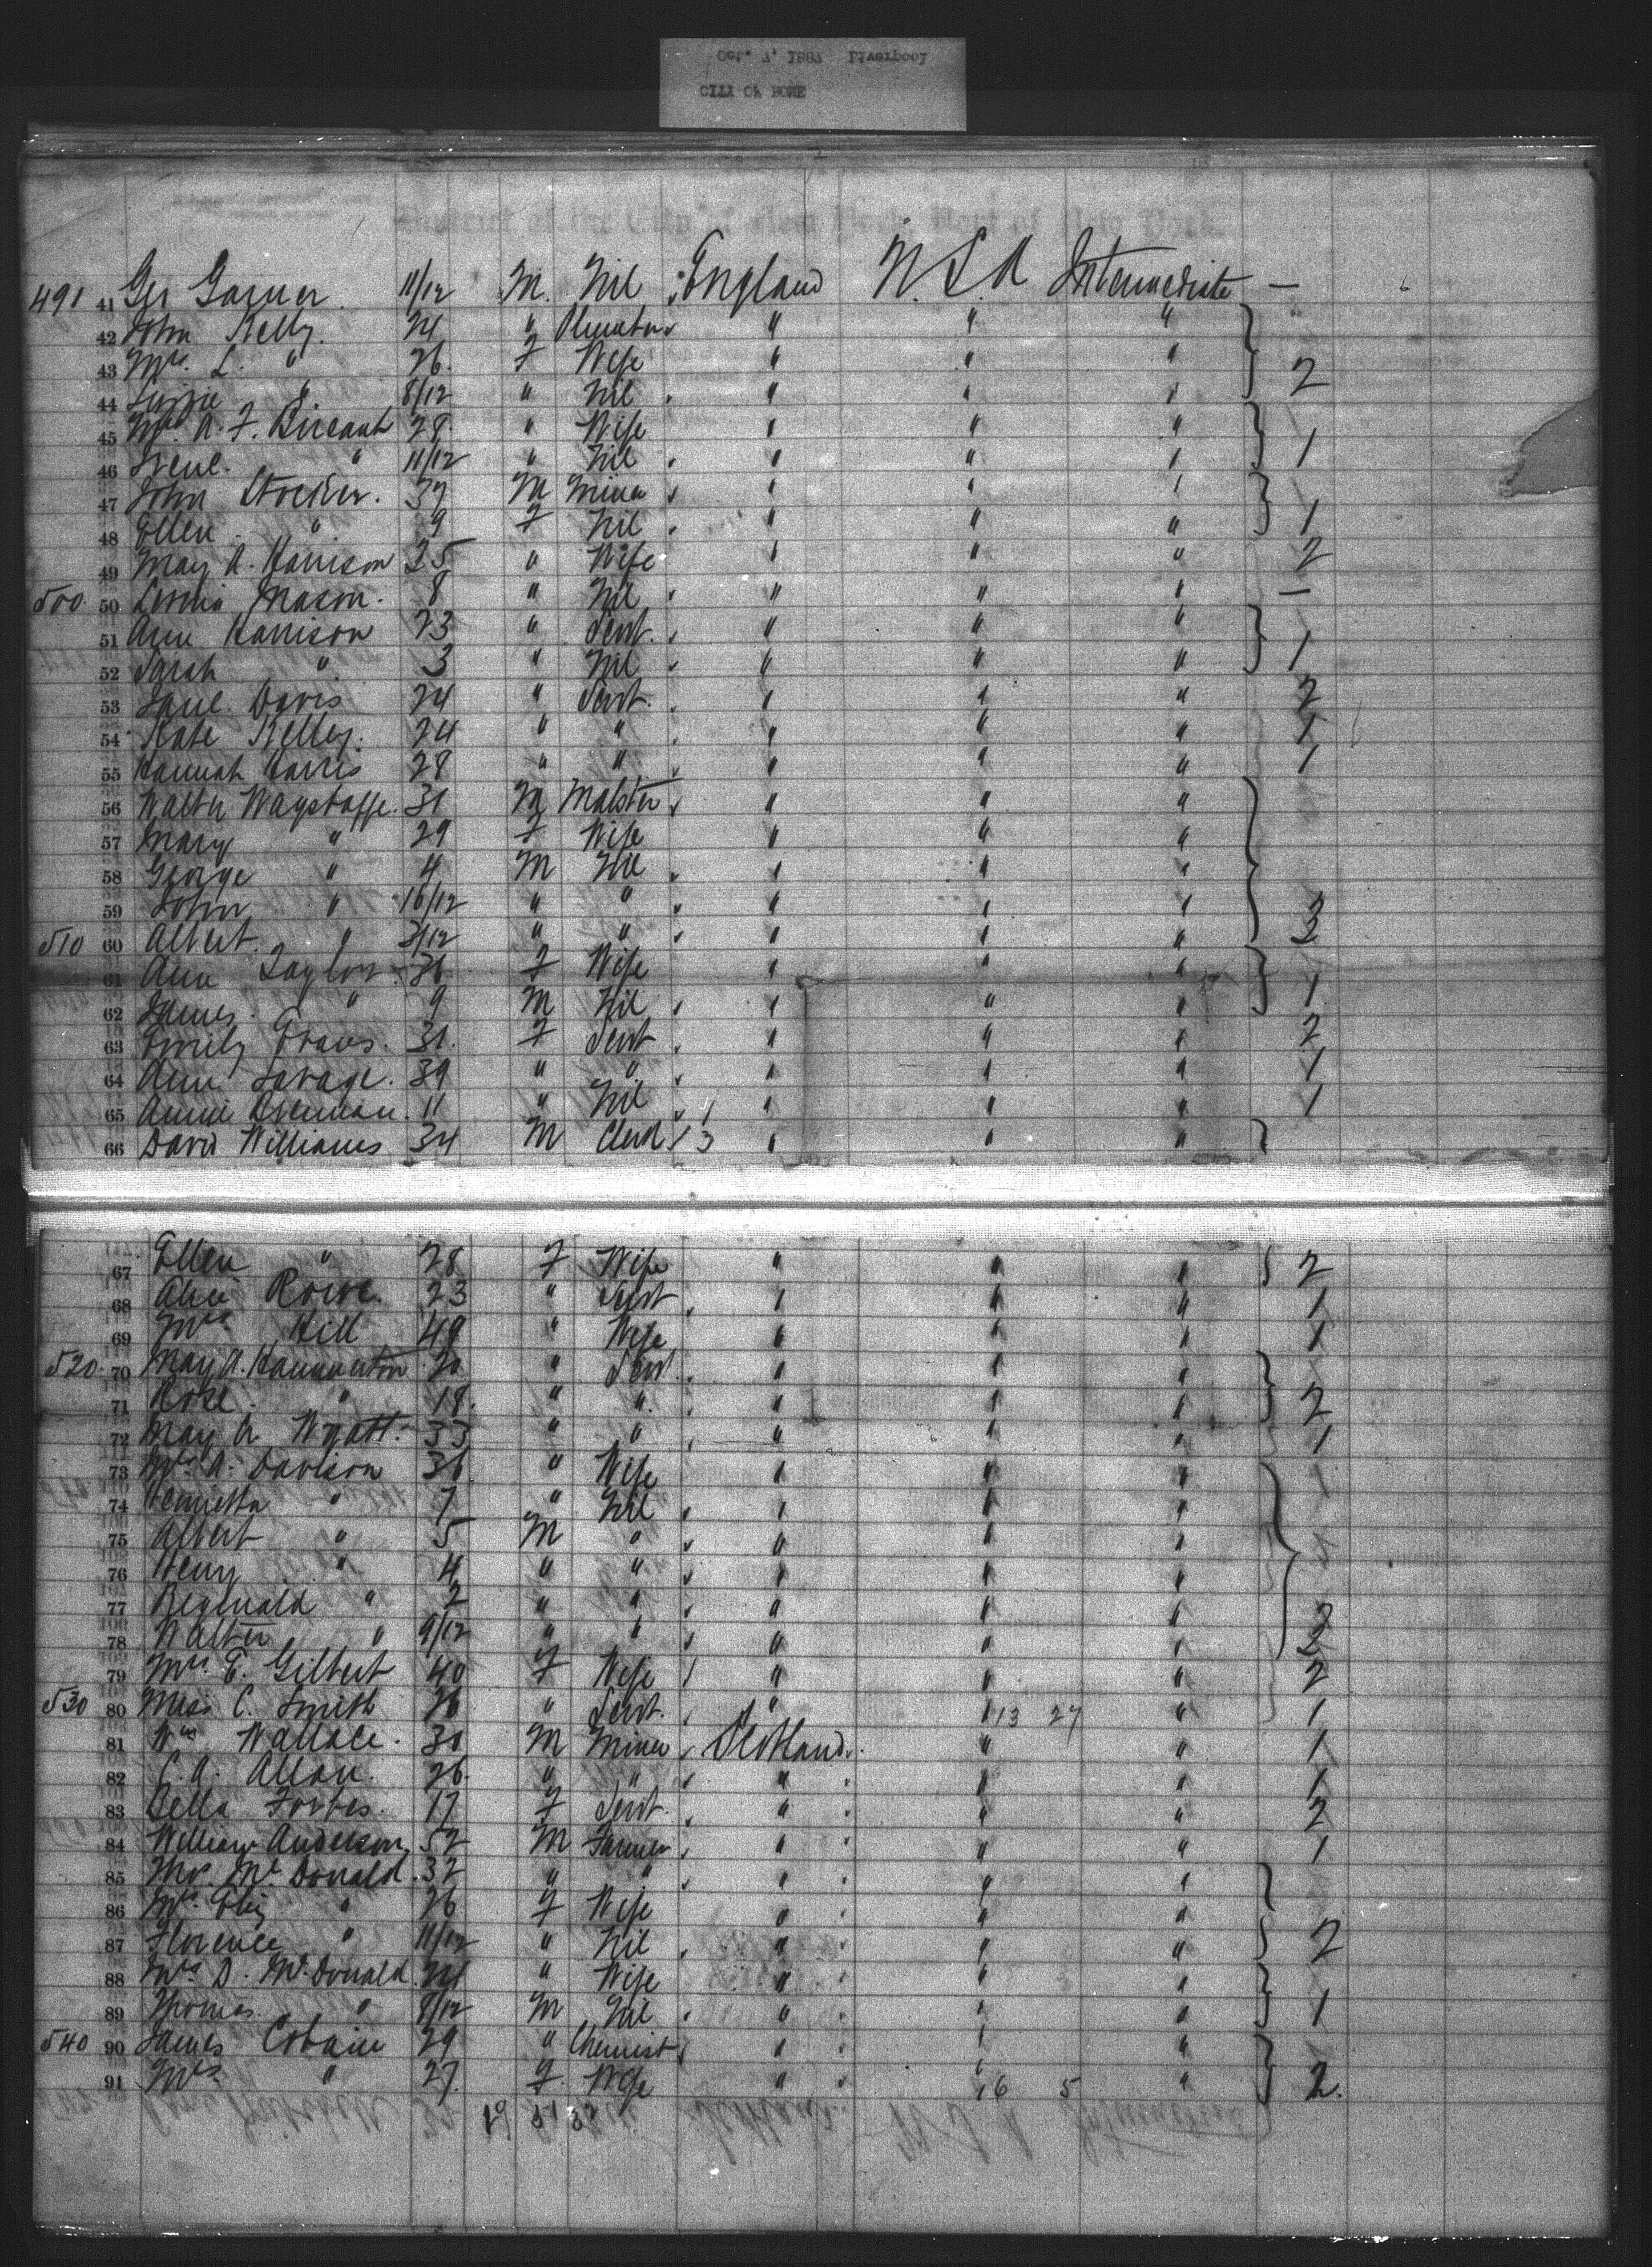 Oct. 7, 1887 Liverpool
CITY OF ROME
District of the City of New York, Port of New York.
491 41 Geo Garner. 11/12 M. Nil England U.S.A Intermediate —
42 John Kelly. 24 " " " "
43 Mrs. L. " 26. F Wife " " " 2
44 Lizzie " 8/12 " Nil " " "
45 Mrs A. F. 28. " Wife " " "
46 Irene. " 11/12 " Nil " " " 1
47 John Stocker. 37 M Miner " " "
48 Ellen " 9 F Nil " " " 1
49 Mary A. Harrison 25 " Wife " " " 2
500. 50 Mason. 8 " Nil " " " —
51 Ann Harrison 23 " Servt. " " "
52 Sarah " 3 " Nil " " " 1
53 Jane. Davis 24 " Servt. " " " 2
54 Kate Kelley. 24 " " " " " 1
55 Hannah Harris 28 " " " " " 1
56 Walter Wagstaffe. 31 M Malster " " "
57 Mary " 29 F Wife " " "
58 George " 4 M Nil " " "
59 John " 16/12 " " " " "
510 60 Albert. " 3/12 " " " " " 3
61 Ann Taylor. 36 F Wife " " "
62 James. " 9 M Nil " " " 1
63 Emily Evans. 31. F Servt " " " 2
64 Ann Savage. 39 " " " " " 1
65 Annie 11 " Nil 1 " " " 1
66 David Williams 34 M Clerk 3 " " "
67 Ellen " 28 F Wife " " " 2
68 Alice Rowe. 23 " Servt " " " 1
69 Mrs Hill 49 " Wife " " " 1
520. 70 May A. 20 " Servt. " " "
71 Rose. " 18. " " " " " 2
72 May A Wyatt. 33 " " " " " 1
73 Mrs A. Davison 36 " Wife " " "
74 Henrietta " 7 " Nil " " "
75 Albert " 5 M " " " "
76 Henry " 4 " " " " "
77 Reginald " 2 " " " " "
78 Walter " 9/12 " " " " " 3
79 Mrs. E. Gilbert 40 F Wife " " " 2
530 80 Miss C. Smith 26 " Servt. " " 13 27 " 1
81 Wm Wallace. 30 M Miner Scotland. " " 1
82 C. A. Allan. 26. " " " " " 1
83 Bella Forbes. 17 F Servt. " " " 2
84 William Anderson 52 M Farmer " " " 1
85 Mr. McDonald. 32 " " " " "
86 Mrs Eliz " 26 F Wife " " "
87 Florence " 11/12 " Nil " " " 2
88 Mrs D. McDonald. 24 " Wife " " "
89 Thomas. " 8/12 M Nil " " " 1
540 90 James Cobain 29 " Chemist " " "
91 Mrs " 27. F. Wife " " 6 5 " 2.
19 31 33